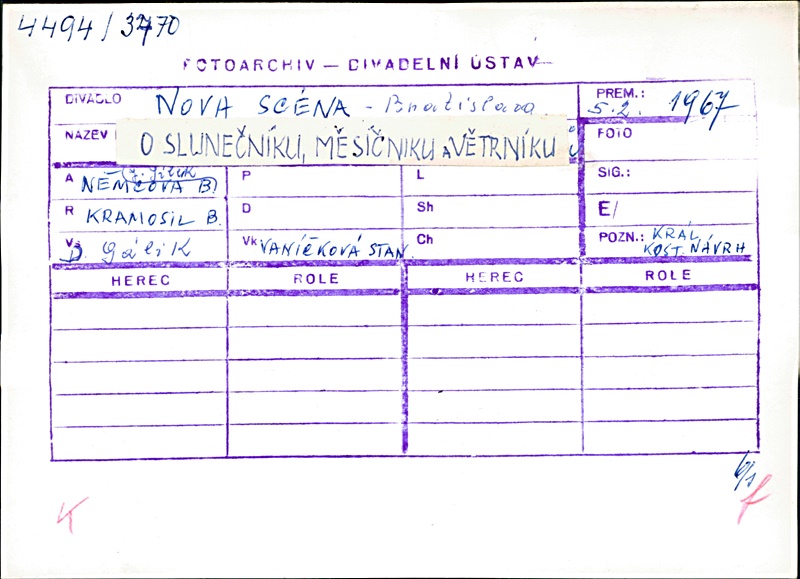 4494/3470
FOTOARCHIV — DIVADELNÍ ÚSTAV
DIVADLO NOVA SCÉNA - Bratislava
PREM.: 5.2. 1967
NÁZEV O SLUNEČNÍKU, MĚSÍČNIKU A VĚTRNÍKU
FOTO
A NĚMCOVÁ B.
P
L
SIG.:
R KRAMOSIL B.
D
Sh
E/
V D. Gálik
Vk VANÍČKOVÁ STAN.
Ch
POZN.: KRÁL
KOST. NÁVRH
HEREC ROLE HEREC ROLE